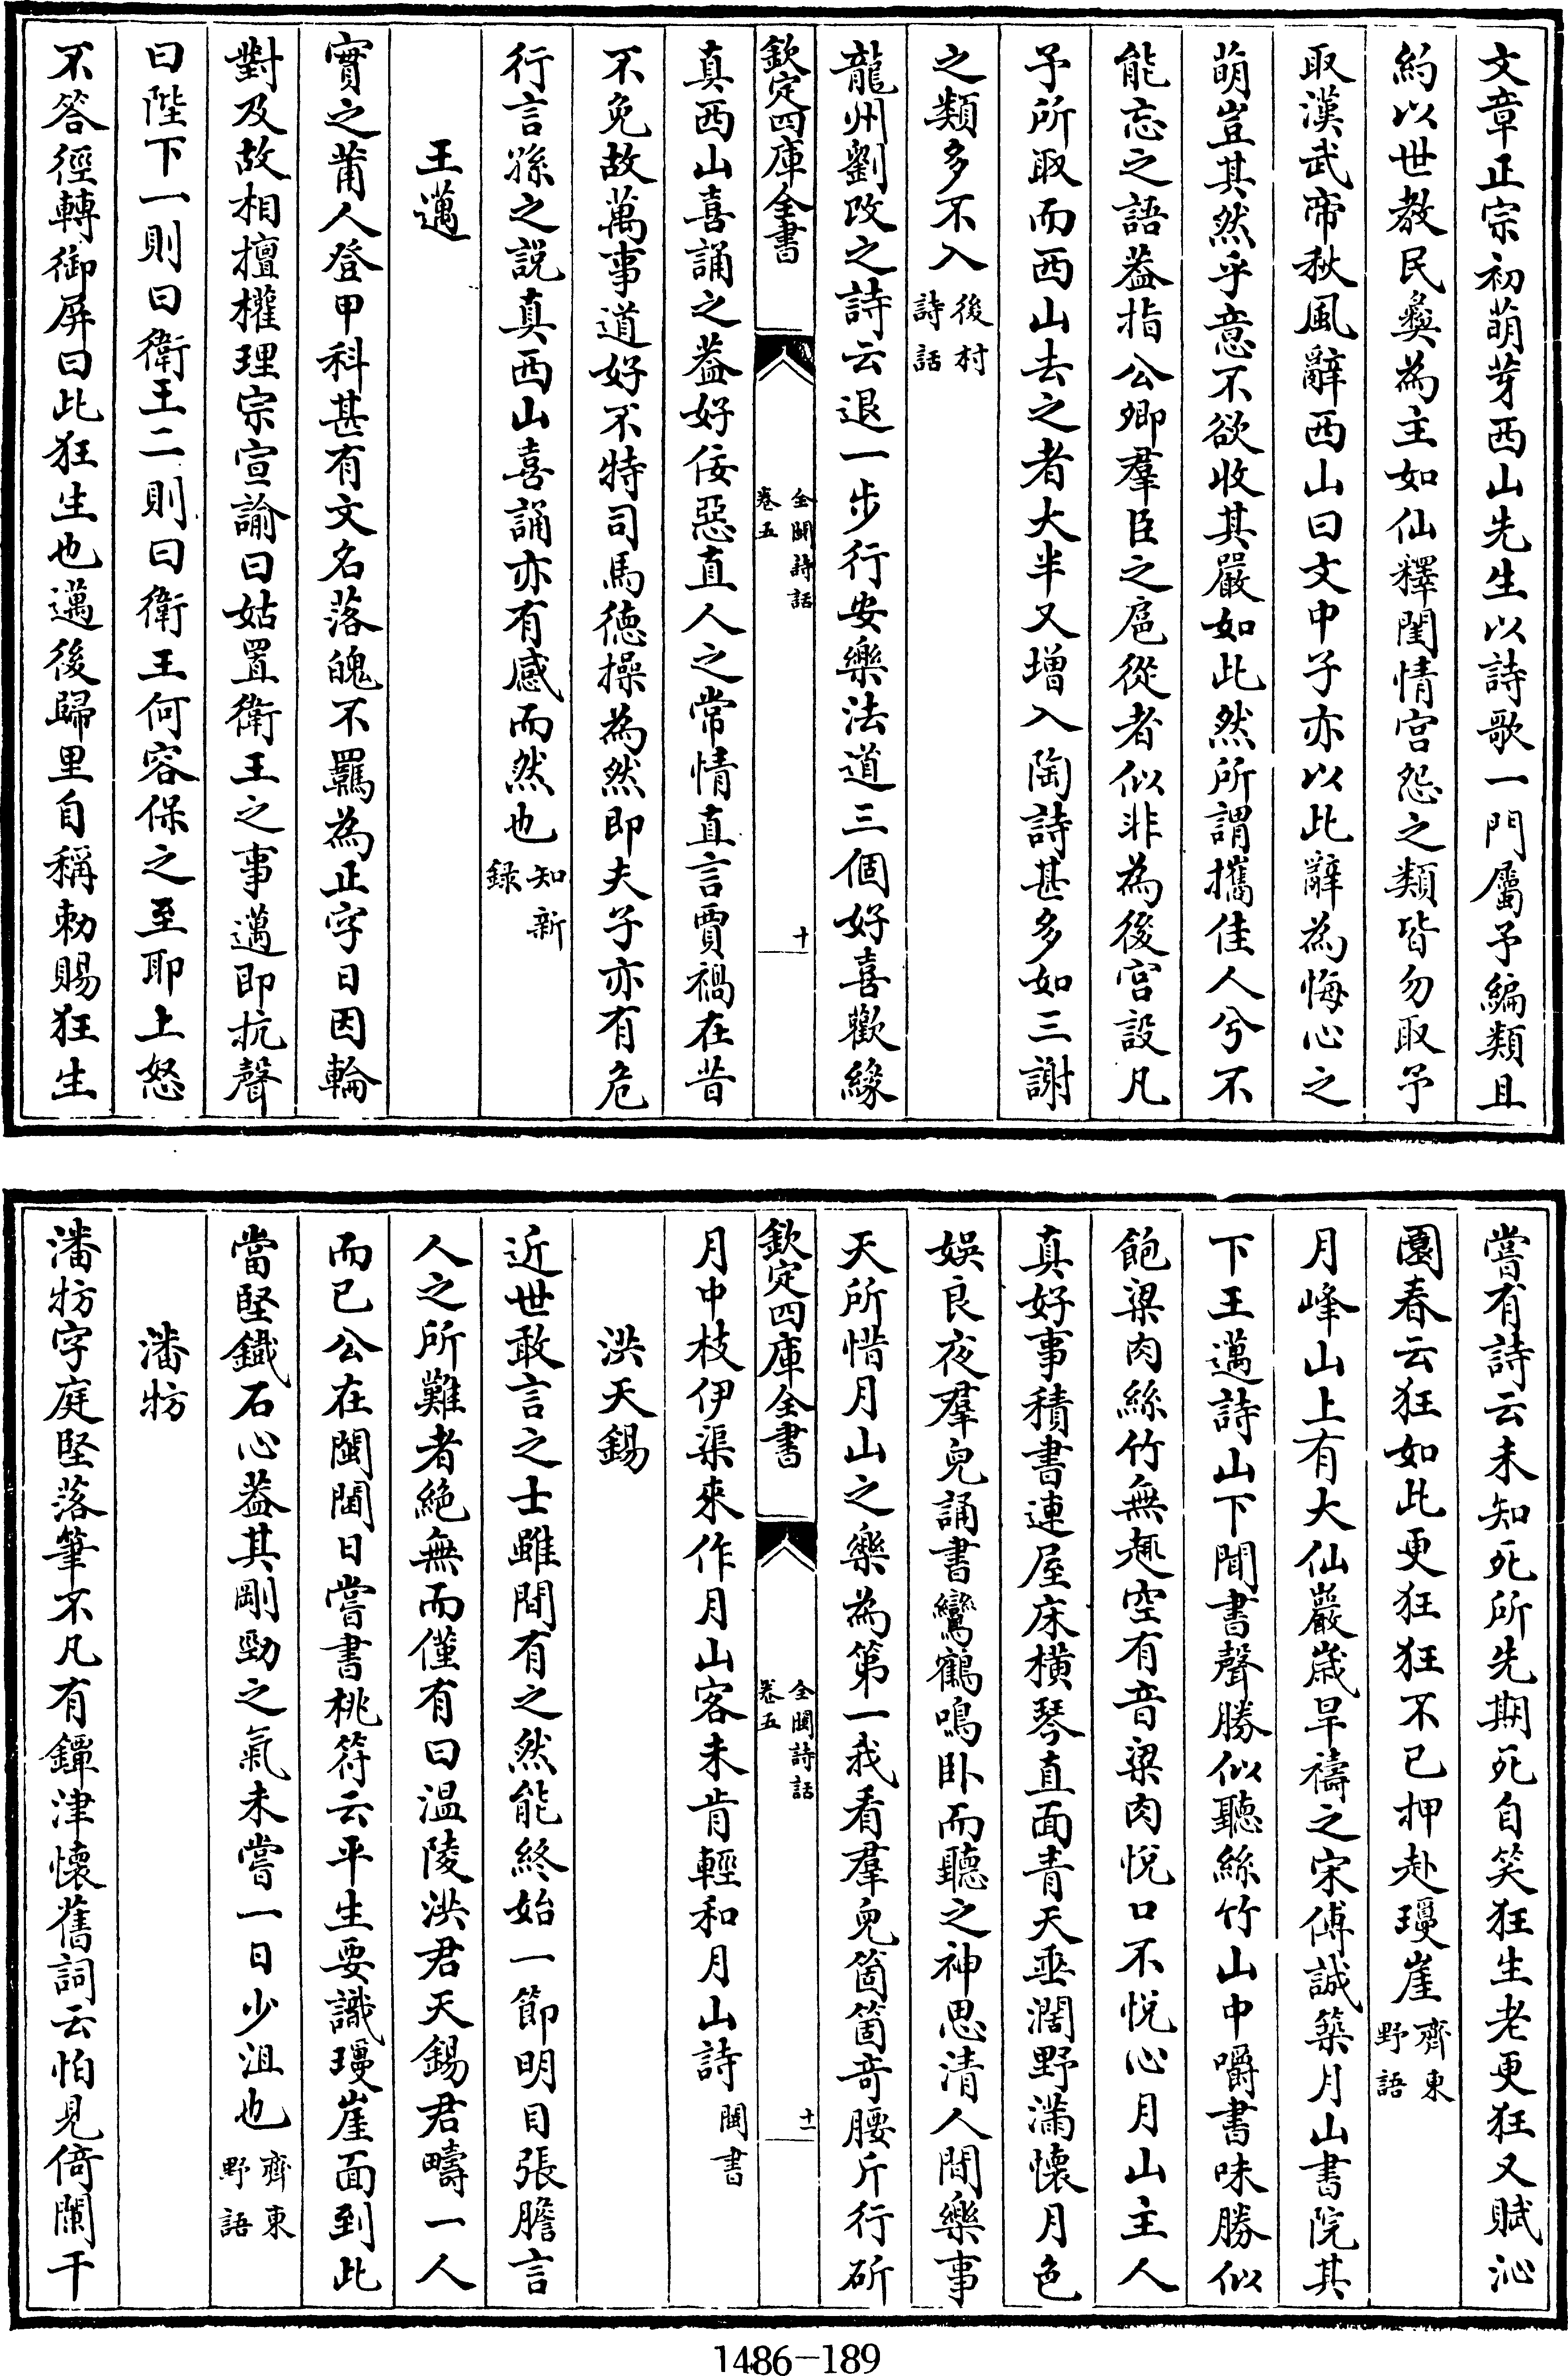 文章正宗初萌芽西山先生以詩歌一門屬予編類且
約以世教民彝為主如仙釋閨情宮怨之類皆勿取予
取漢武帝秋風辭西山曰文中子亦以此辭為悔心之
萌豈其然乎意不欲收其嚴如此然所謂攜佳人兮不
能忘之語葢指公卿羣臣之扈從者似非為後宮設凡
予所取而西山去之者大半又增入陶詩甚多如三謝
之類多不入後村詩話
龍州劉改之詩云退一步行安樂法道三個好喜歡緣
欽定四庫全書
全閩詩話
卷五
十
真西山喜誦之葢好佞惡直人之常情直言賈禍在昔
不免故萬事道好不特司馬德操為然即夫子亦有危
行言孫之説真西山喜誦亦有感而然也知新録
王邁
實之莆人登甲科甚有文名落魄不羈為正字日因輪
對及故相擅權理宗宣諭曰姑置衛王之事邁即抗聲
曰陛下一則曰衛王二則曰衛王何容保之至耶上怒
不答徑轉御屏曰此狂生也邁後歸里自稱勅賜狂生
嘗有詩云未知死所先期死自笑狂生老更狂又賦沁
園春云狂如此更狂狂不已押赴瓊崖齊東野語
月峰山上有大仙巖歲旱禱之宋傅誠築月山書院其
下王邁詩山下聞書聲勝似聽絲竹山中嚼書味勝似
飽粱肉絲竹無趣空有音粱肉悅口不悅心月山主人
真好事積書連屋床横琴直面青天垂濶野滿懷月色
娛良夜羣兒誦書鸞鶴鳴卧而聽之神思清人間樂事
天所惜月山之樂為第一我看羣兒箇箇奇腰斤行斫
欽定四庫全書
全閩詩話
卷五
十一
月中枝伊渠來作月山客未肯輕和月山詩閩書
洪天錫
近世敢言之士雖間有之然能終始一節明目張膽言
人之所難者絶無而僅有曰温陵洪君天錫君疇一人
而已公在閩閫日嘗書桃符云平生要識瓊崖面到此
當堅鐵石心葢其剛勁之氣未嘗一日少沮也齊東野語
潘牥
潘牥字庭堅落筆不凡有鐔津懷舊詞云怕見倚闌干
1486-189